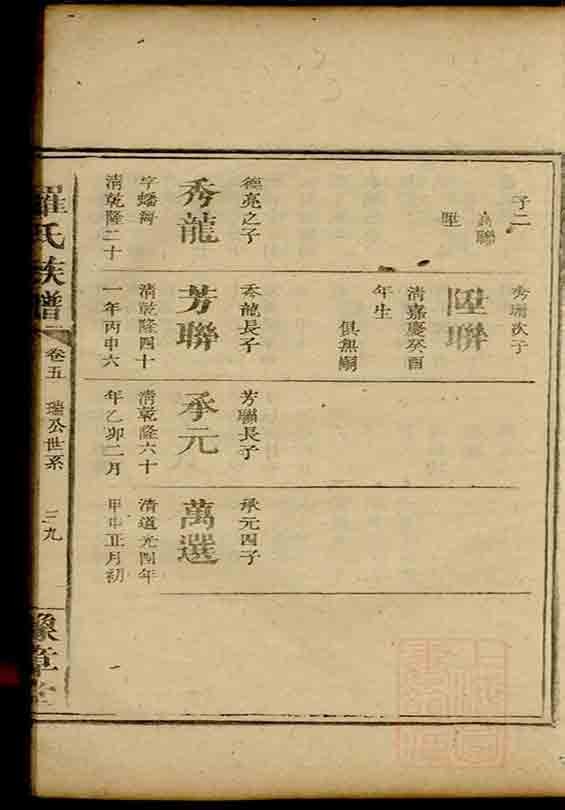 子二
聯
陞
秀珊次子
陞聯
清嘉慶癸酉
年生
俱無嗣
德亮之子
秀龍
字蟠海
清乾隆二十
秀龍長子
芳聯
清乾隆四十
一年丙申六
芳聯長子
承元
清乾隆六十
年乙卯二月
承元四子
萬選
清道光四年
甲申正月初
羅氏族譜
卷五
瑞公世系
三九
豫章堂